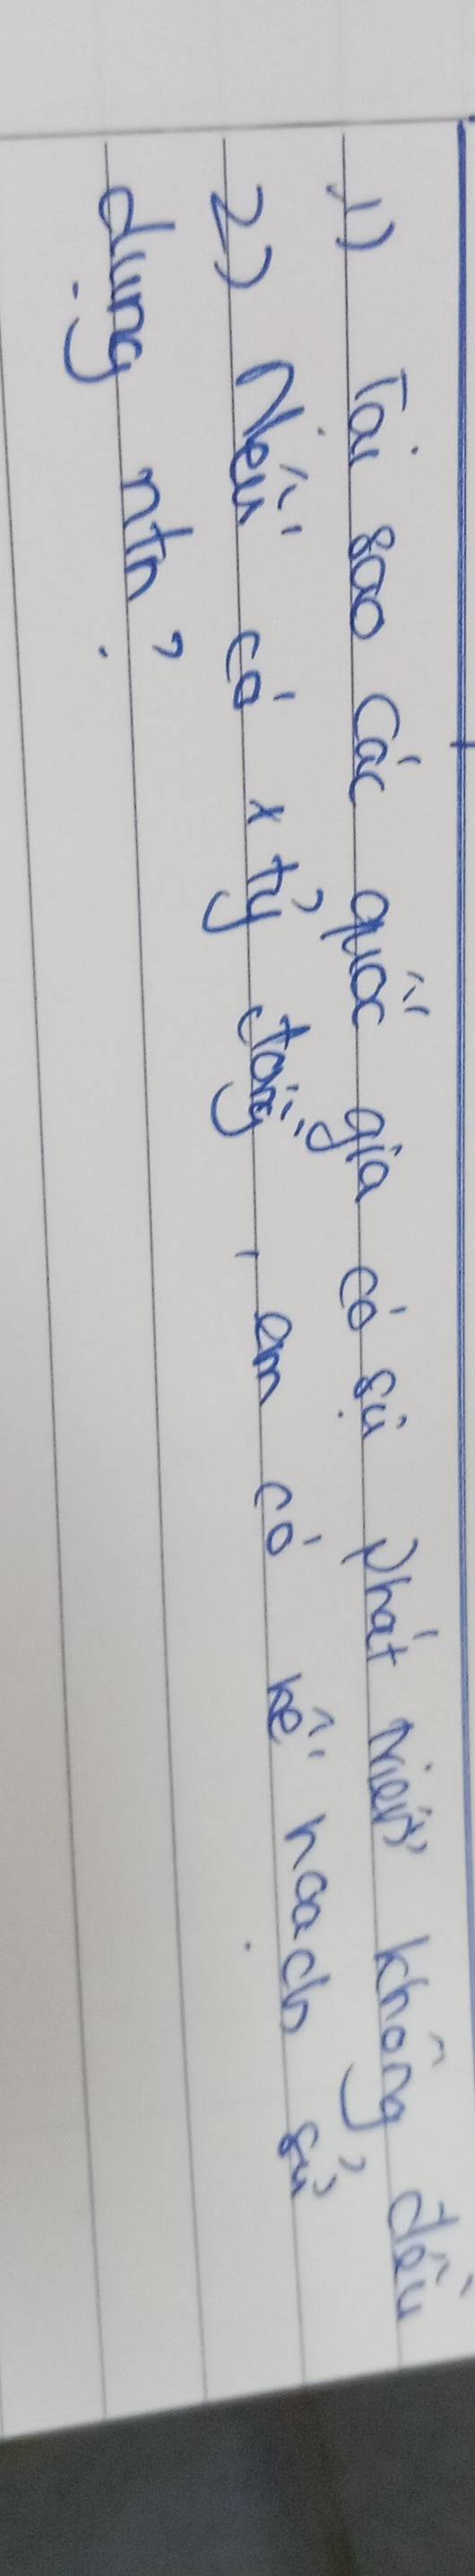 1) Tại sao các quốc gia có sự phát triển không đều
2) Nếu có x tỷ đồng, em có kế hoạch sử
dụng ntn?